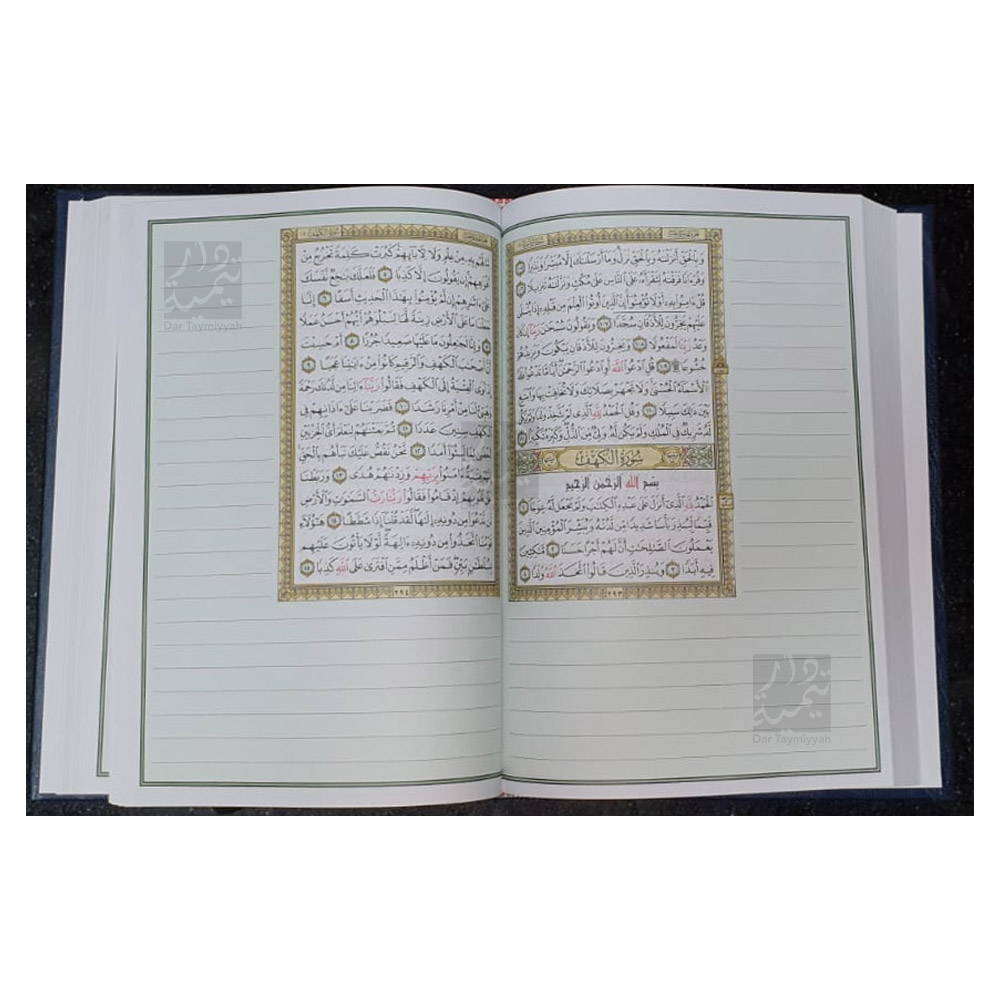 وَبِالْحَقِّ أَنزَلْنَٰهُ وَبِالْحَقِّ نَزَلَ وَمَا أَرْسَلْنَٰكَ إِلَّا مُبَشِّرًا وَنَذِيرًا ١٠٥
وَقُرْءَانًا فَرَقْنَٰهُ لِتَقْرَأَهُۥ عَلَى النَّاسِ عَلَىٰ مُكْثٍ وَنَزَّلْنَٰهُ تَنزِيلًا ١٠٦
قُلْ ءَامِنُوا بِهِۦٓ أَوْ لَا تُؤْمِنُوٓا إِنَّ الَّذِينَ أُوتُوا الْعِلْمَ مِن قَبْلِهِۦٓ إِذَا يُتْلَىٰ
عَلَيْهِمْ يَخِرُّونَ لِلْأَذْقَانِ سُجَّدًا ١٠٧ وَيَقُولُونَ سُبْحَٰنَ رَبِّنَآ إِن كَانَ
وَعْدُ رَبِّنَا لَمَفْعُولًا ١٠٨ وَيَخِرُّونَ لِلْأَذْقَانِ يَبْكُونَ وَيَزِيدُهُمْ
خُشُوعًا ۩ ١٠٩ قُلِ ادْعُوا اللَّهَ أَوِ ادْعُوا الرَّحْمَٰنَ أَيًّا مَّا تَدْعُوا فَلَهُ
الْأَسْمَآءُ الْحُسْنَىٰ وَلَا تَجْهَرْ بِصَلَاتِكَ وَلَا تُخَافِتْ بِهَا وَابْتَغِ
بَيْنَ ذَٰلِكَ سَبِيلًا ١١٠ وَقُلِ الْحَمْدُ لِلَّهِ الَّذِي لَمْ يَتَّخِذْ وَلَدًا وَلَمْ يَكُن
لَّهُۥ شَرِيكٌ فِي الْمُلْكِ وَلَمْ يَكُن لَّهُۥ وَلِيٌّ مِّنَ الذُّلِّ وَكَبِّرْهُ تَكْبِيرًا ١١١
سُورَةُ الْكَهْفِ
بِسْمِ اللَّهِ الرَّحْمَٰنِ الرَّحِيمِ
الْحَمْدُ لِلَّهِ الَّذِيٓ أَنزَلَ عَلَىٰ عَبْدِهِ الْكِتَٰبَ وَلَمْ يَجْعَل لَّهُۥ عِوَجَا ١
قَيِّمًا لِّيُنذِرَ بَأْسًا شَدِيدًا مِّن لَّدُنْهُ وَيُبَشِّرَ الْمُؤْمِنِينَ الَّذِينَ
يَعْمَلُونَ الصَّٰلِحَٰتِ أَنَّ لَهُمْ أَجْرًا حَسَنًا ٢ مَّٰكِثِينَ
فِيهِ أَبَدًا ٣ وَيُنذِرَ الَّذِينَ قَالُوا اتَّخَذَ اللَّهُ وَلَدًا ٤
٢٩٣
سُورَةُ الْكَهْفِ
مَّا لَهُم بِهِۦ مِنْ عِلْمٍ وَلَا لِءَابَآئِهِمْ كَبُرَتْ كَلِمَةً تَخْرُجُ مِنْ
أَفْوَٰهِهِمْ إِن يَقُولُونَ إِلَّا كَذِبًا ٥ فَلَعَلَّكَ بَٰخِعٌ نَّفْسَكَ
عَلَىٰٓ ءَاثَٰرِهِمْ إِن لَّمْ يُؤْمِنُوا بِهَٰذَا الْحَدِيثِ أَسَفًا ٦ إِنَّا
جَعَلْنَا مَا عَلَى الْأَرْضِ زِينَةً لَّهَا لِنَبْلُوَهُمْ أَيُّهُمْ أَحْسَنُ عَمَلًا
٧ وَإِنَّا لَجَٰعِلُونَ مَا عَلَيْهَا صَعِيدًا جُرُزًا ٨ أَمْ حَسِبْتَ
أَنَّ أَصْحَٰبَ الْكَهْفِ وَالرَّقِيمِ كَانُوا مِنْ ءَايَٰتِنَا عَجَبًا ٩
إِذْ أَوَى الْفِتْيَةُ إِلَى الْكَهْفِ فَقَالُوا رَبَّنَآ ءَاتِنَا مِن لَّدُنكَ رَحْمَةً
وَهَيِّئْ لَنَا مِنْ أَمْرِنَا رَشَدًا ١٠ فَضَرَبْنَا عَلَىٰٓ ءَاذَانِهِمْ فِي
الْكَهْفِ سِنِينَ عَدَدًا ١١ ثُمَّ بَعَثْنَٰهُمْ لِنَعْلَمَ أَيُّ الْحِزْبَيْنِ
أَحْصَىٰ لِمَا لَبِثُوٓا أَمَدًا ١٢ نَّحْنُ نَقُصُّ عَلَيْكَ نَبَأَهُم بِالْحَقِّ
إِنَّهُمْ فِتْيَةٌ ءَامَنُوا بِرَبِّهِمْ وَزِدْنَٰهُمْ هُدًى ١٣ وَرَبَطْنَا
عَلَىٰ قُلُوبِهِمْ إِذْ قَامُوا فَقَالُوا رَبُّنَا رَبُّ السَّمَٰوَٰتِ وَالْأَرْضِ
لَن نَّدْعُوَا مِن دُونِهِۦٓ إِلَٰهًا لَّقَدْ قُلْنَآ إِذًا شَطَطًا ١٤ هَٰٓؤُلَآءِ
قَوْمُنَا اتَّخَذُوا مِن دُونِهِۦٓ ءَالِهَةً لَّوْلَا يَأْتُونَ عَلَيْهِم
بِسُلْطَٰنٍ بَيِّنٍ فَمَنْ أَظْلَمُ مِمَّنِ افْتَرَىٰ عَلَى اللَّهِ كَذِبًا ١٥
٢٩٤
دار تيمية
Dar Taymiyyah
دار تيمية
Dar Taymiyyah